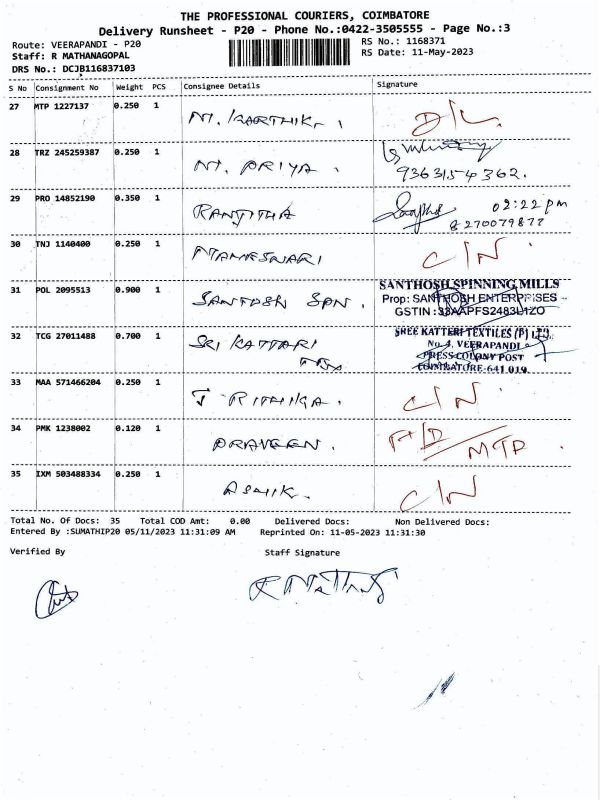 THE PROFESSIONAL COURIERS, COIMBATORE
Delivery Runsheet - P20 - Phone No.:0422-3505555 - Page No.:3
Route: VEERAPANDI - P20
Staff: R MATHANAGOPAL
DRS No.: DCJB116837103
RS No.: 1168371
RS Date: 11-May-2023
S No Consignment No Weight PCS Consignee Details Signature
27 MTP 1227137 0.250 1 M. KARTHIK. D/L
28 TRZ 245259387 0.250 1 M. PRIYA.
9363154362.
29 PRO 14852190 0.350 1 RANJITHA 02:22 pm
8270079877
30 TNJ 1140400 0.250 1 MAHESWARI C/N
31 POL 2095513 0.900 1 SANTOSH SPN.
SANTHOSH SPINNING MILLS
Prop: SANTHOSH ENTERPRISES -
GSTIN :33AAPFS2483L1ZO
32 TCG 27011488 0.700 1 SRI KATTARI Tex
SREE KATTERI TEXTILES (P) LTD.
No.4, VEERAPANDI
PRESS COLONY POST
COIMBATORE-641 019.
33 MAA 571466204 0.250 1 J RITHIKA. C/N
34 PMK 1238002 0.120 1 PRAVEEN. F/D MTP.
35 IXM 503488334 0.250 1 ASHIK. C/N
Total No. Of Docs: 35 Total COD Amt: 0.00 Delivered Docs: Non Delivered Docs:
Entered By :SUMATHIP20 05/11/2023 11:31:09 AM Reprinted On: 11-05-2023 11:31:30
Verified By Staff Signature